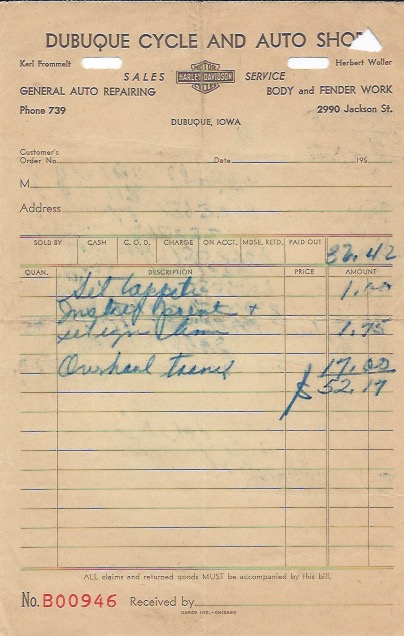 DUBUQUE CYCLE AND AUTO SHOP
Karl Frommelt Herbert Woller
SALES MOTOR HARLEY-DAVIDSON CYCLES SERVICE
GENERAL AUTO REPAIRING BODY and FENDER WORK
Phone 739 2990 Jackson St.
DUBUQUE, IOWA
Customer's
Order No. Date 195
M
Address
SOLD BY CASH C. O. D. CHARGE ON ACCT. MDSE. RETD. PAID OUT 32.42
QUAN. DESCRIPTION PRICE AMOUNT
Set tappets 1.00
Install points +
set ign time 1.75
Overhaul trans 17.00
$ 52.17
ALL claims and returned goods MUST be accompanied by this bill.
No. B00946 Received by